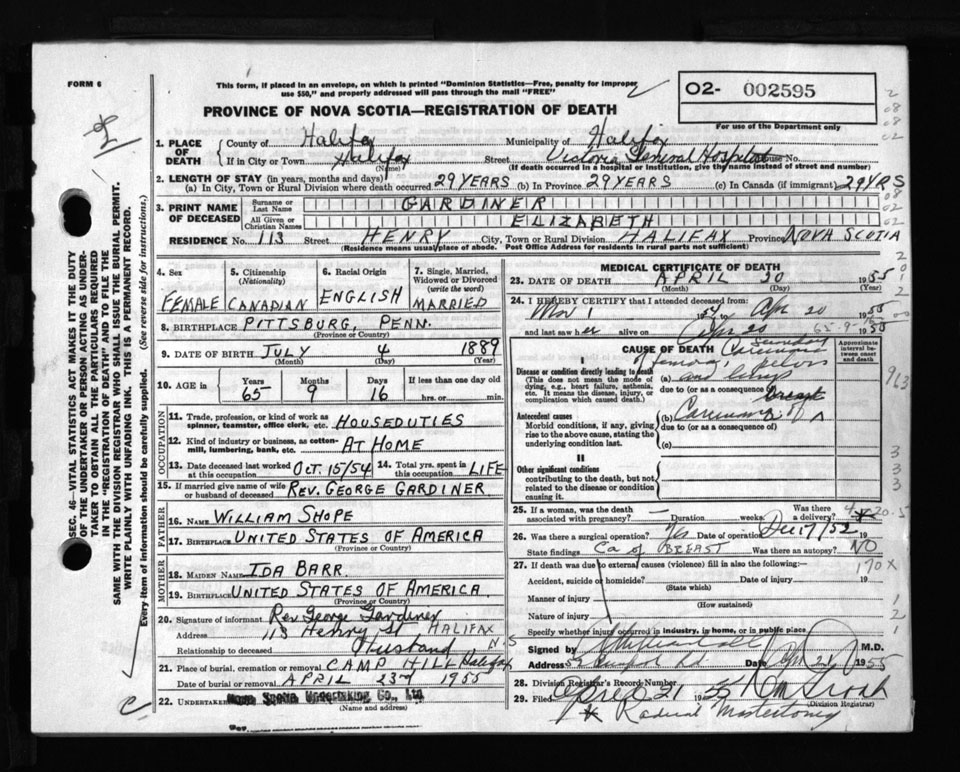 FORM 6
This form, if placed in an envelope, on which is printed "Dominion Statistics—Free, penalty for improper
use $50," and properly addressed will pass through the mail "FREE"
O2- 002595
For use of the Department only
PROVINCE OF NOVA SCOTIA—REGISTRATION OF DEATH
SEC. 46—VITAL STATISTICS ACT MAKES IT THE DUTY
OF THE UNDERTAKER OR PERSON ACTING AS UNDER-
TAKER TO OBTAIN ALL THE PARTICULARS REQUIRED
IN THE "REGISTRATION OF DEATH" AND TO FILE THE
SAME WITH THE DIVISION REGISTRAR WHO SHALL ISSUE THE BURIAL PERMIT.
WRITE PLAINLY WITH UNFADING INK. THIS IS A PERMANENT RECORD.
Every item of information should be carefully supplied. (See reverse side for instructions.)
1. PLACE OF DEATH County of Halifax Municipality of Halifax
If in City or Town Halifax (Name) Street Victoria General Hospital House No.
(If death occurred in a hospital or institution, give the name instead of street and number)
2. LENGTH OF STAY (in years, months and days)
(a) In City, Town or Rural Division where death occurred 29 YEARS (b) In Province 29 YEARS (c) In Canada (if immigrant) 29 YRS
3. PRINT NAME OF DECEASED Surname or Last Name GARDINER
All Given or Christian Names ELIZABETH
RESIDENCE No. 113 Street HENRY City, Town or Rural Division HALIFAX Province NOVA SCOTIA
(Residence means usual place of abode. Post Office Address for residents in rural parts not sufficient)
4. Sex FEMALE
5. Citizenship (Nationality) CANADIAN
6. Racial Origin ENGLISH
7. Single, Married, Widowed or Divorced (write the word) MARRIED
8. BIRTHPLACE PITTSBURG, PENN.
(Province or Country)
9. DATE OF BIRTH JULY 4 1889
(Month) (Day) (Year)
10. AGE in Years 65 Months 9 Days 16 If less than one day old
hrs. or min.
OCCUPATION
11. Trade, profession, or kind of work as
spinner, teamster, office clerk, etc. HOUSEDUTIES
12. Kind of industry or business, as cotton-
mill, lumbering, bank, etc. AT HOME
13. Date deceased last worked at this occupation OCT. 15/54 14. Total yrs. spent in this occupation LIFE
15. If married give name of wife
or husband of deceased REV. GEORGE GARDINER
FATHER
16. NAME WILLIAM SHOPE
17. BIRTHPLACE UNITED STATES OF AMERICA
(Province or Country)
MOTHER
18. MAIDEN NAME IDA BARR.
19. BIRTHPLACE UNITED STATES OF AMERICA.
(Province or Country)
20. Signature of informant Rev. George Gardiner
Address 113 Henry St HALIFAX
Relationship to deceased Husband N.S
21. Place of burial, cremation or removal CAMP HILL Halifax
Date of burial or removal APRIL 23rd 1955
22. UNDERTAKER Nova Scotia Undertaking Co., Ltd
(Name and address)
MEDICAL CERTIFICATE OF DEATH
23. DATE OF DEATH APRIL 20 1955
(Month) (Day) (Year)
24. I HEREBY CERTIFY that I attended deceased from:
Nov 1 to Apr 20 1955
and last saw her alive on Apr 20 1955
65-9-16
CAUSE OF DEATH
Approximate interval between onset and death
I
Disease or condition directly leading to death
(This does not mean the mode of
dying, e.g., heart failure, asthenia,
etc. It means the disease, injury, or
complication which caused death.)
(a) Secondary Carcinoma
and lungs
due to (or as a consequence of)
Antecedent causes
Morbid conditions, if any, giving
rise to the above cause, stating the
underlying condition last.
(b) Carcinoma of Breast
due to (or as a consequence of)
(c)
II
Other significant conditions
contributing to the death, but not
related to the disease or condition
causing it.
25. If a woman, was the death associated with pregnancy? — Duration weeks. Was there a delivery?
26. Was there a surgical operation? Date of operation Dec 17/52 19
State findings Ca of BREAST Was there an autopsy? NO
170X
27. If death was due to external causes (violence) fill in also the following:—
Accident, suicide or homicide? Date of injury 19
(State which)
Manner of injury
(How sustained)
Nature of injury
Specify whether injury occurred in industry, in home, or in public place.
Signed by M.D.
Address Date Apr 21 1955
28. Division Registrar's Record Number
29. Filed April 21 1955
(Division Registrar)
* Radical Mastectomy